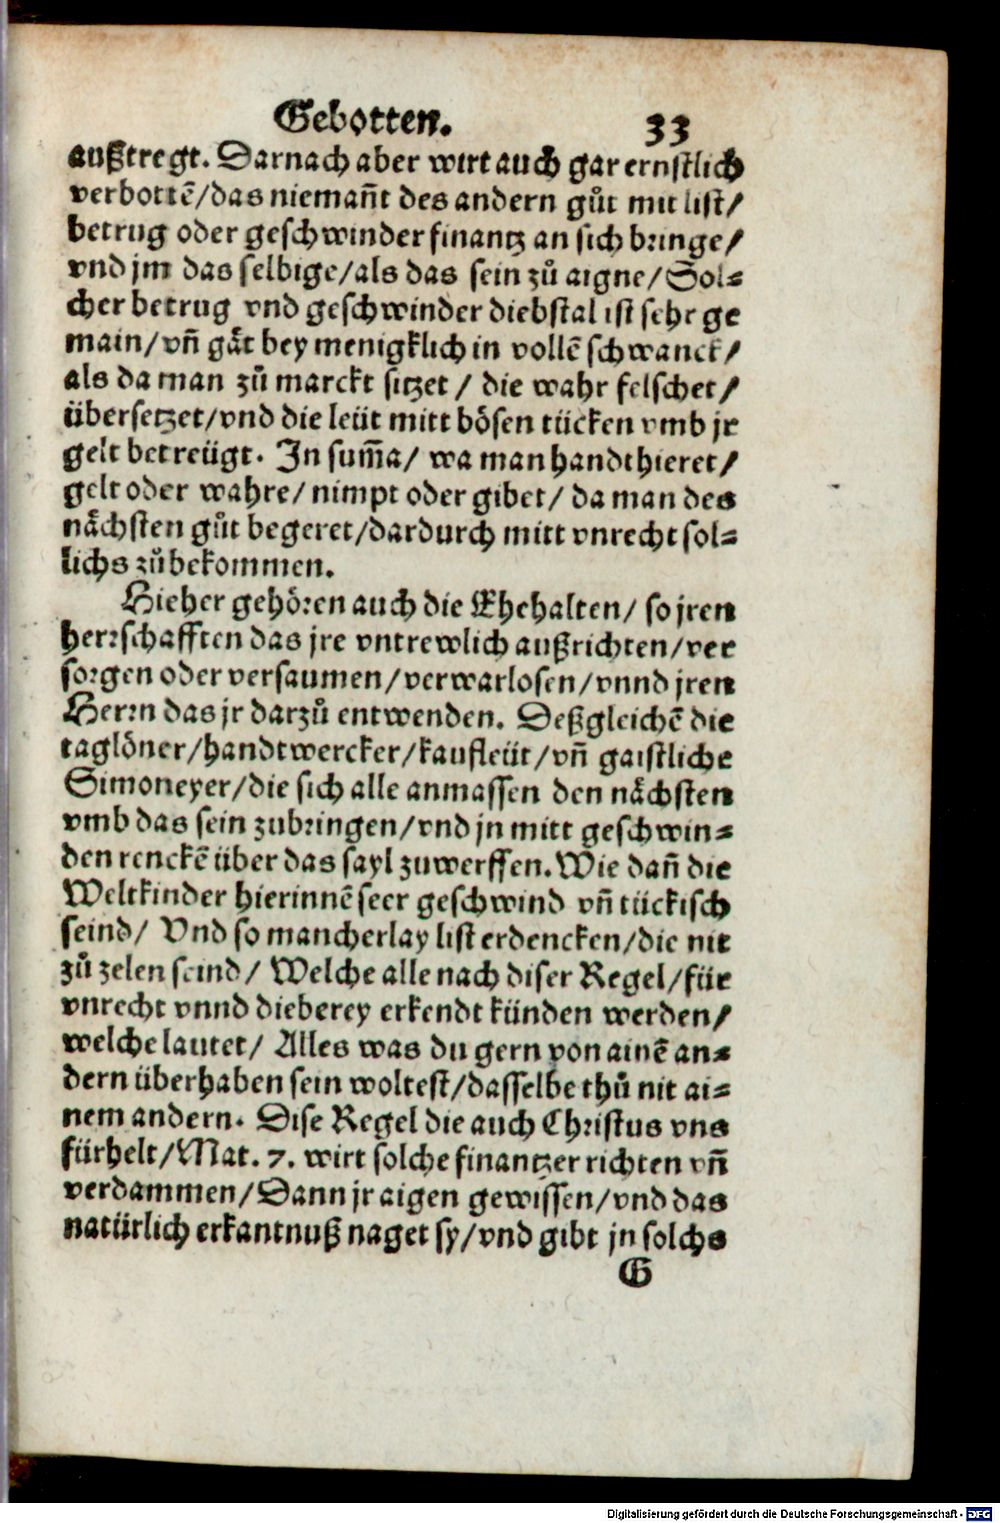 Gebotten. 33
außtregt. Darnach aber wirt auch gar ernstlich
verbottẽ/das niemañt des andern gůt mit list/
betrug oder geschwinder finantz an sich bringe/
vnd jm das selbige/als das sein zů aigne/Sol⸗
cher betrug vnd geschwinder diebstal ist sehr ge
main/vñ gåt bey menigklich in vollẽ schwanck/
als da man zů marckt sitzet / die wahr felschet/
übersetzet/vnd die leüt mitt bösen tücken vmb jr
gelt betreügt. In sum̃a/ wa man handthieret/
gelt oder wahre/ nimpt oder gibet/ da man des
nåchsten gůt begeret/dardurch mitt vnrecht sol⸗
lichs zůbekommen.
Hieher gehören auch die Ehehalten/ so jren
herrschafften das jre vntrewlich außrichten/ver
sorgen oder versaumen/verwarlosen/vnnd jren
Herrn das jr darzů entwenden. Deßgleichẽ die
taglöner/handtwercker/kaufleüt/vñ gaistliche
Simoneyer/die sich alle anmassen den nåchsten
vmb das sein zubringen/vnd jn mitt geschwin⸗
den renckẽ über das sayl zuwerffen. Wie dañ die
Weltkinder hierinnẽ seer geschwind vñ tückisch
seind/ Vnd so mancherlay list erdencken/die nit
zů zelen seind/ Welche alle nach diser Regel/für
vnrecht vnnd dieberey erkendt künden werden/
welche lautet/ Alles was du gern von ainẽ an⸗
dern überhaben sein woltest/dasselbe thů nit ai⸗
nem andern. Dise Regel die auch Christus vns
fürhelt/Mat. 7. wirt solche finantzer richten vñ
verdammen/Dann jr aigen gewissen/vnd das
natürlich erkantnuß naget sy/vnd gibt jn solchs
G
Digitalisierung gefördert durch die Deutsche Forschungsgemeinschaft - DFG